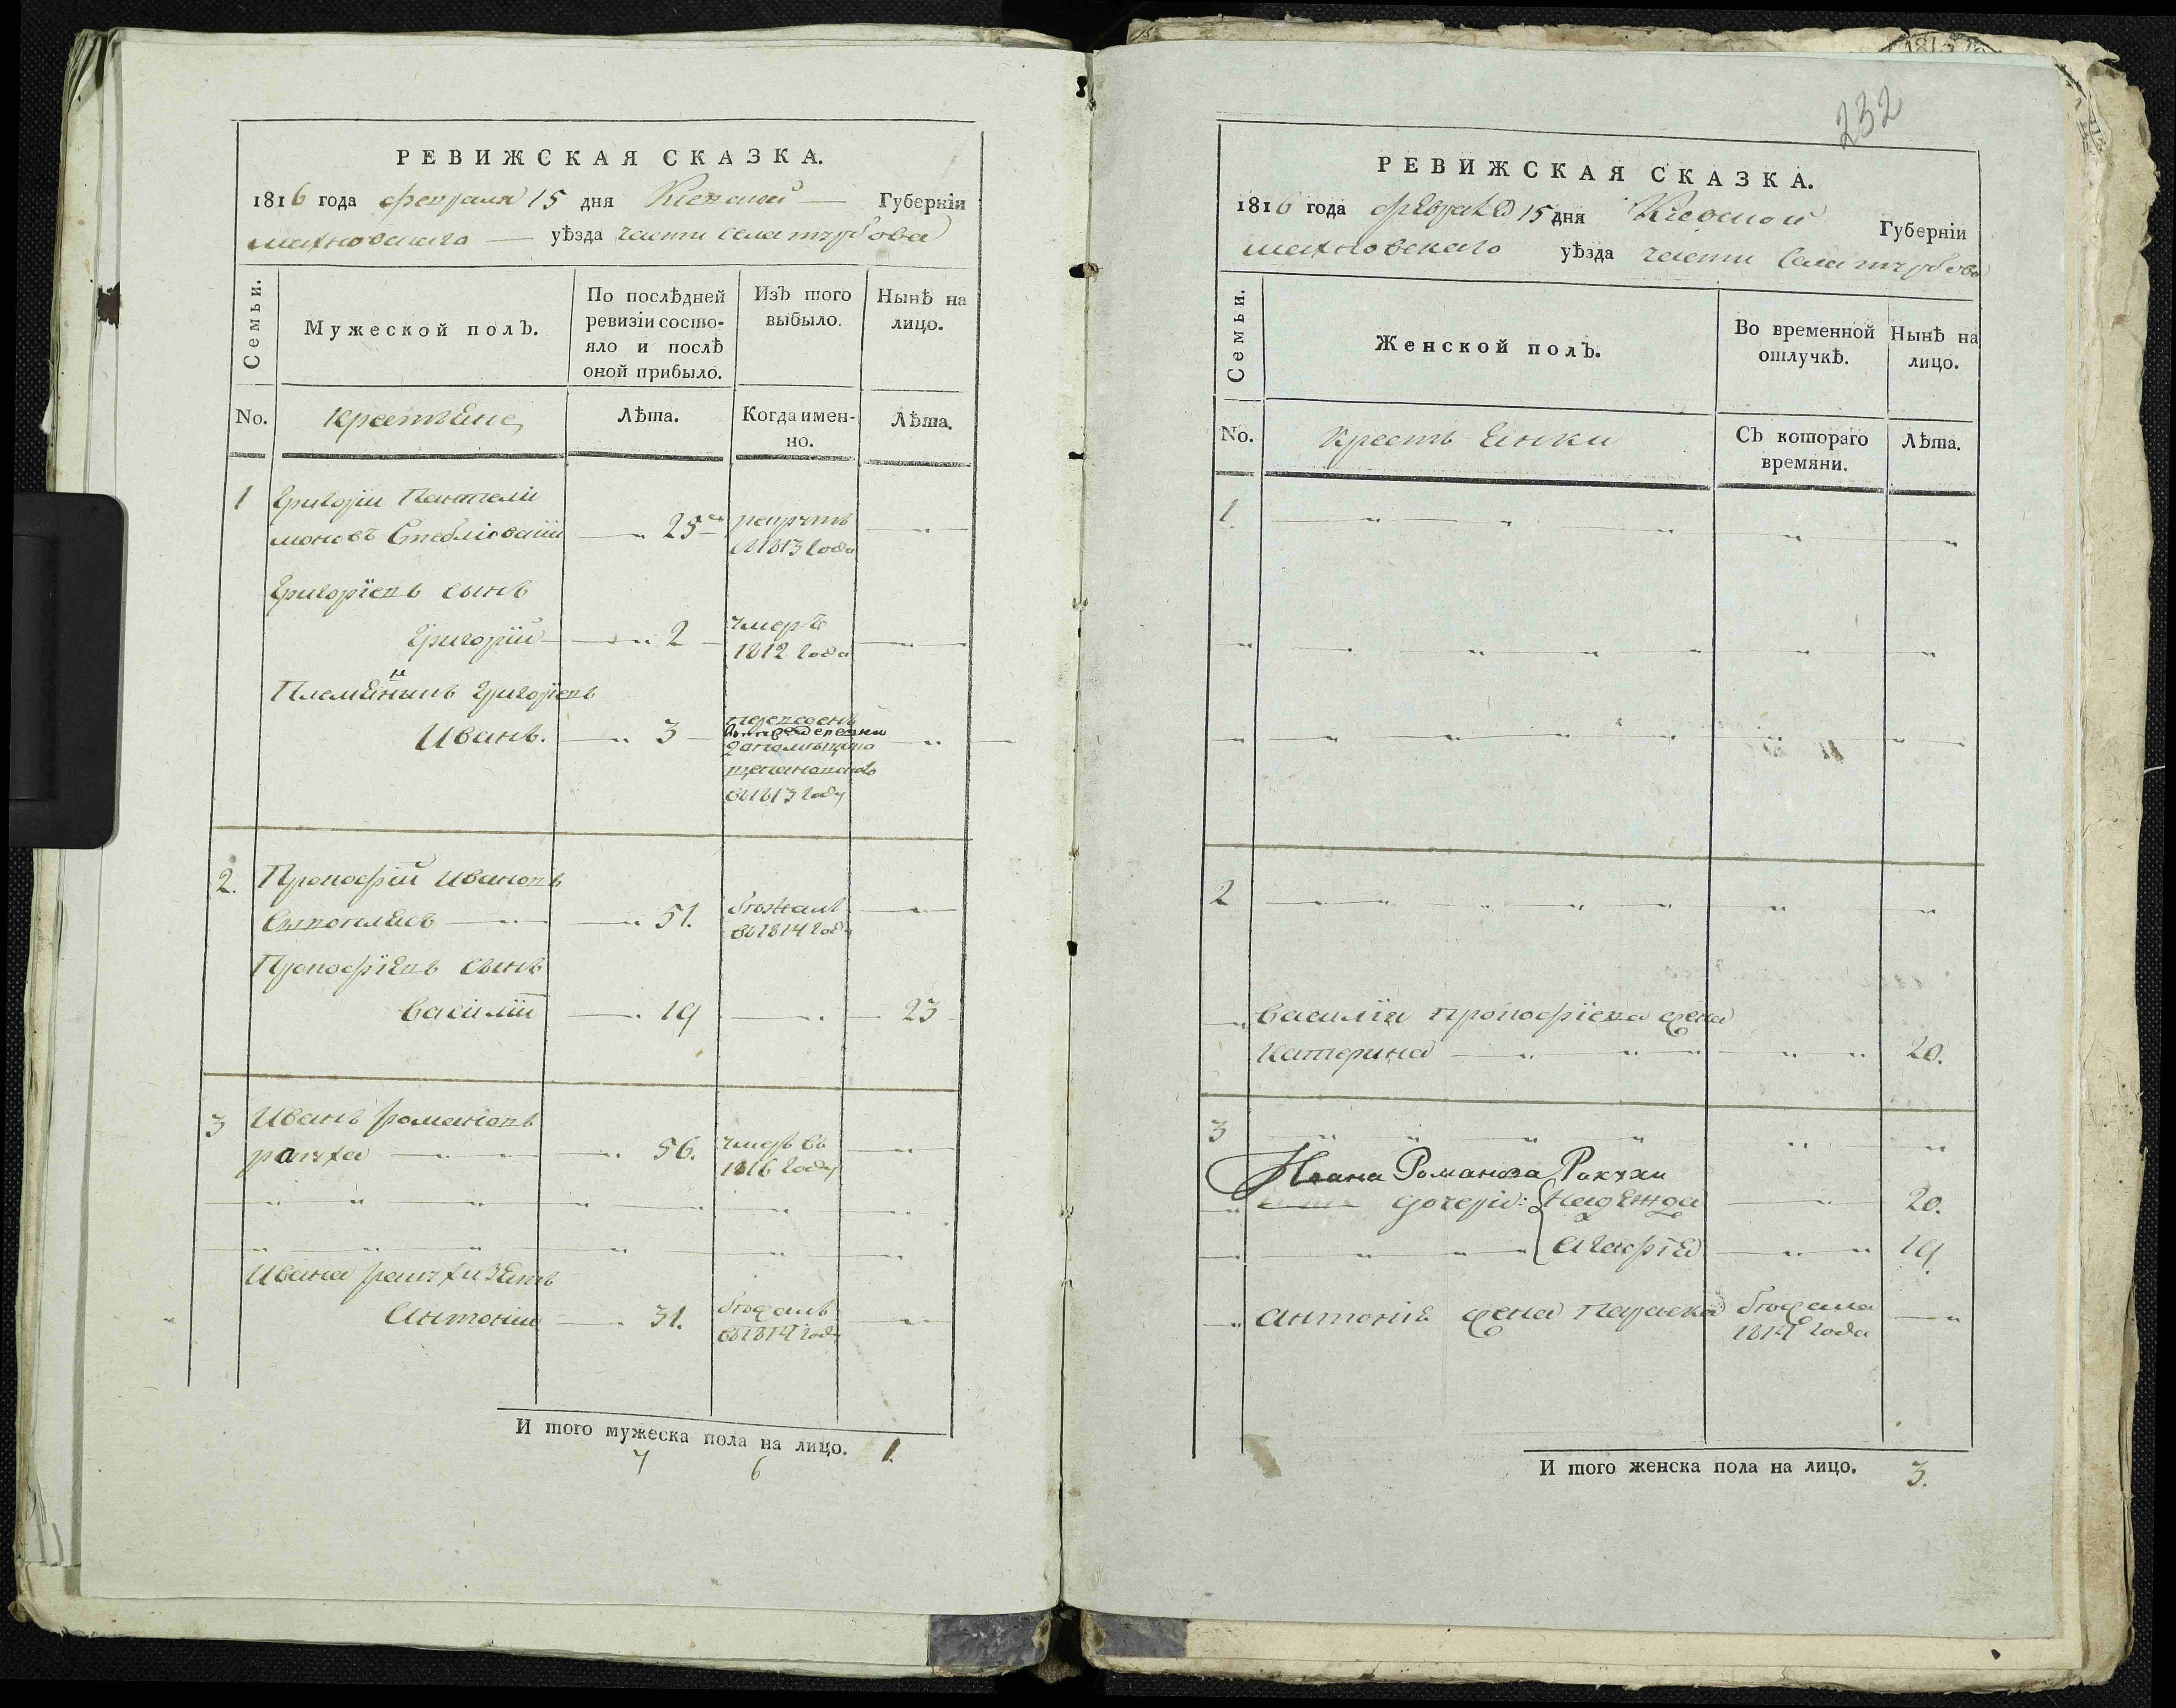 РЕВИЖСКАЯ СКАЗКА.
1816 года февраля 15 дня Киевской Губерніи
махновскаго уѣзда части села турбова
Семьи.
Мужеской полъ.
По послѣдней ревизіи состо-
яло и послѣ
оной прибыло.
Изъ того
выбыло.
Нынѣ на
лицо.
No.
крестьене
Лѣта.
Когда имен-
но.
Лѣта.
1 Григорій Пантели
моновъ 25 рекрутъ
1813 года
Григоріевъ сынъ
Григорій 2 умеръ
1812 года
Племенникъ Григоріевъ
Иванъ. 3 переведенъ
1813 году
2. Прокофій Ивановъ
51. бежалъ
въ 1814 году
Прокофіевъ сынъ
василій 19 23
3 Иванъ романовъ
ракуха 56. умеръ въ
1816 году
Ивана ракухи зеть
Антоній 31. бежалъ
въ 1814 году
И того мужеска пола на лицо. 1.
7 6
232
РЕВИЖСКАЯ СКАЗКА.
1816 года февраля 15 дня Киевской Губерніи
махновскаго уѣзда части села турбова
Семьи.
Женской полъ.
Во временной
отлучкѣ.
Нынѣ на
лицо.
No.
кресть енки
Съ котораго
времяни.
Лѣта.
1.
2
василія прокофіева жена
катерина 20.
3
Ивана Романова Ракухи
дочери: надежда 20.
агафія 19
антонія жена параска бежала
1814 года
И того женска пола на лицо. 3.